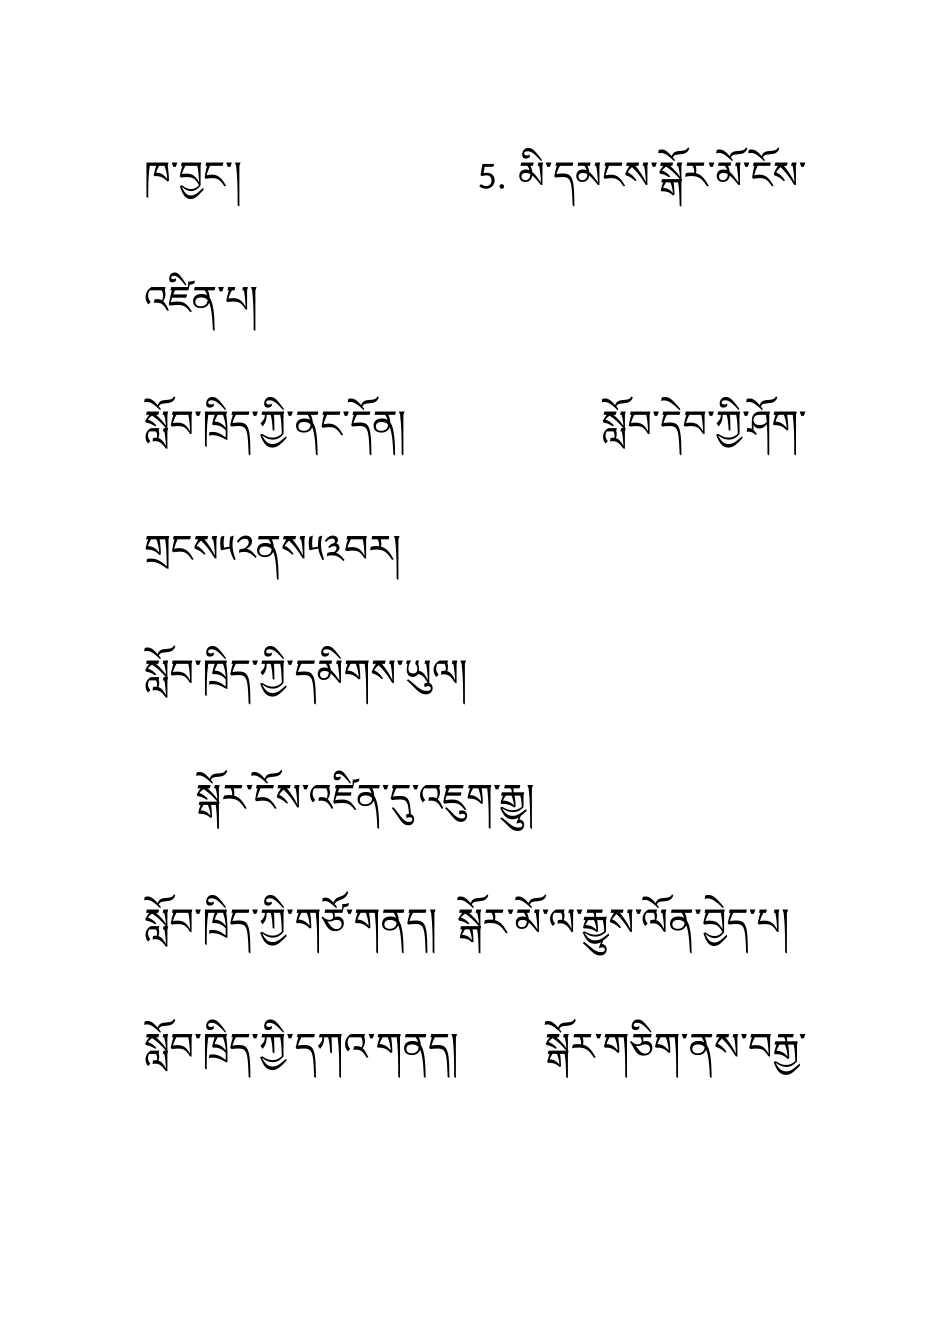 ཁ་བྱང་། 5. མི་དམངས་སྒོར་མོ་ངོས་
འཛིན་པ།
སློབ་ཁྲིད་ཀྱི་ནང་དོན། སློབ་དེབ་ཀྱི་ཤོག་
གྲངས༥༢ནས༥༣བར།
སློབ་ཁྲིད་ཀྱི་དམིགས་ཡུལ།
སྒོར་ངོས་འཛིན་དུ་འཇུག་རྒྱུ།
སློབ་ཁྲིད་ཀྱི་གཙོ་གནད། སྒོར་མོ་ལ་རྒྱུས་ལོན་བྱེད་པ།
སློབ་ཁྲིད་ཀྱི་དཀའ་གནད། སྒོར་གཅིག་ནས་བརྒྱ་